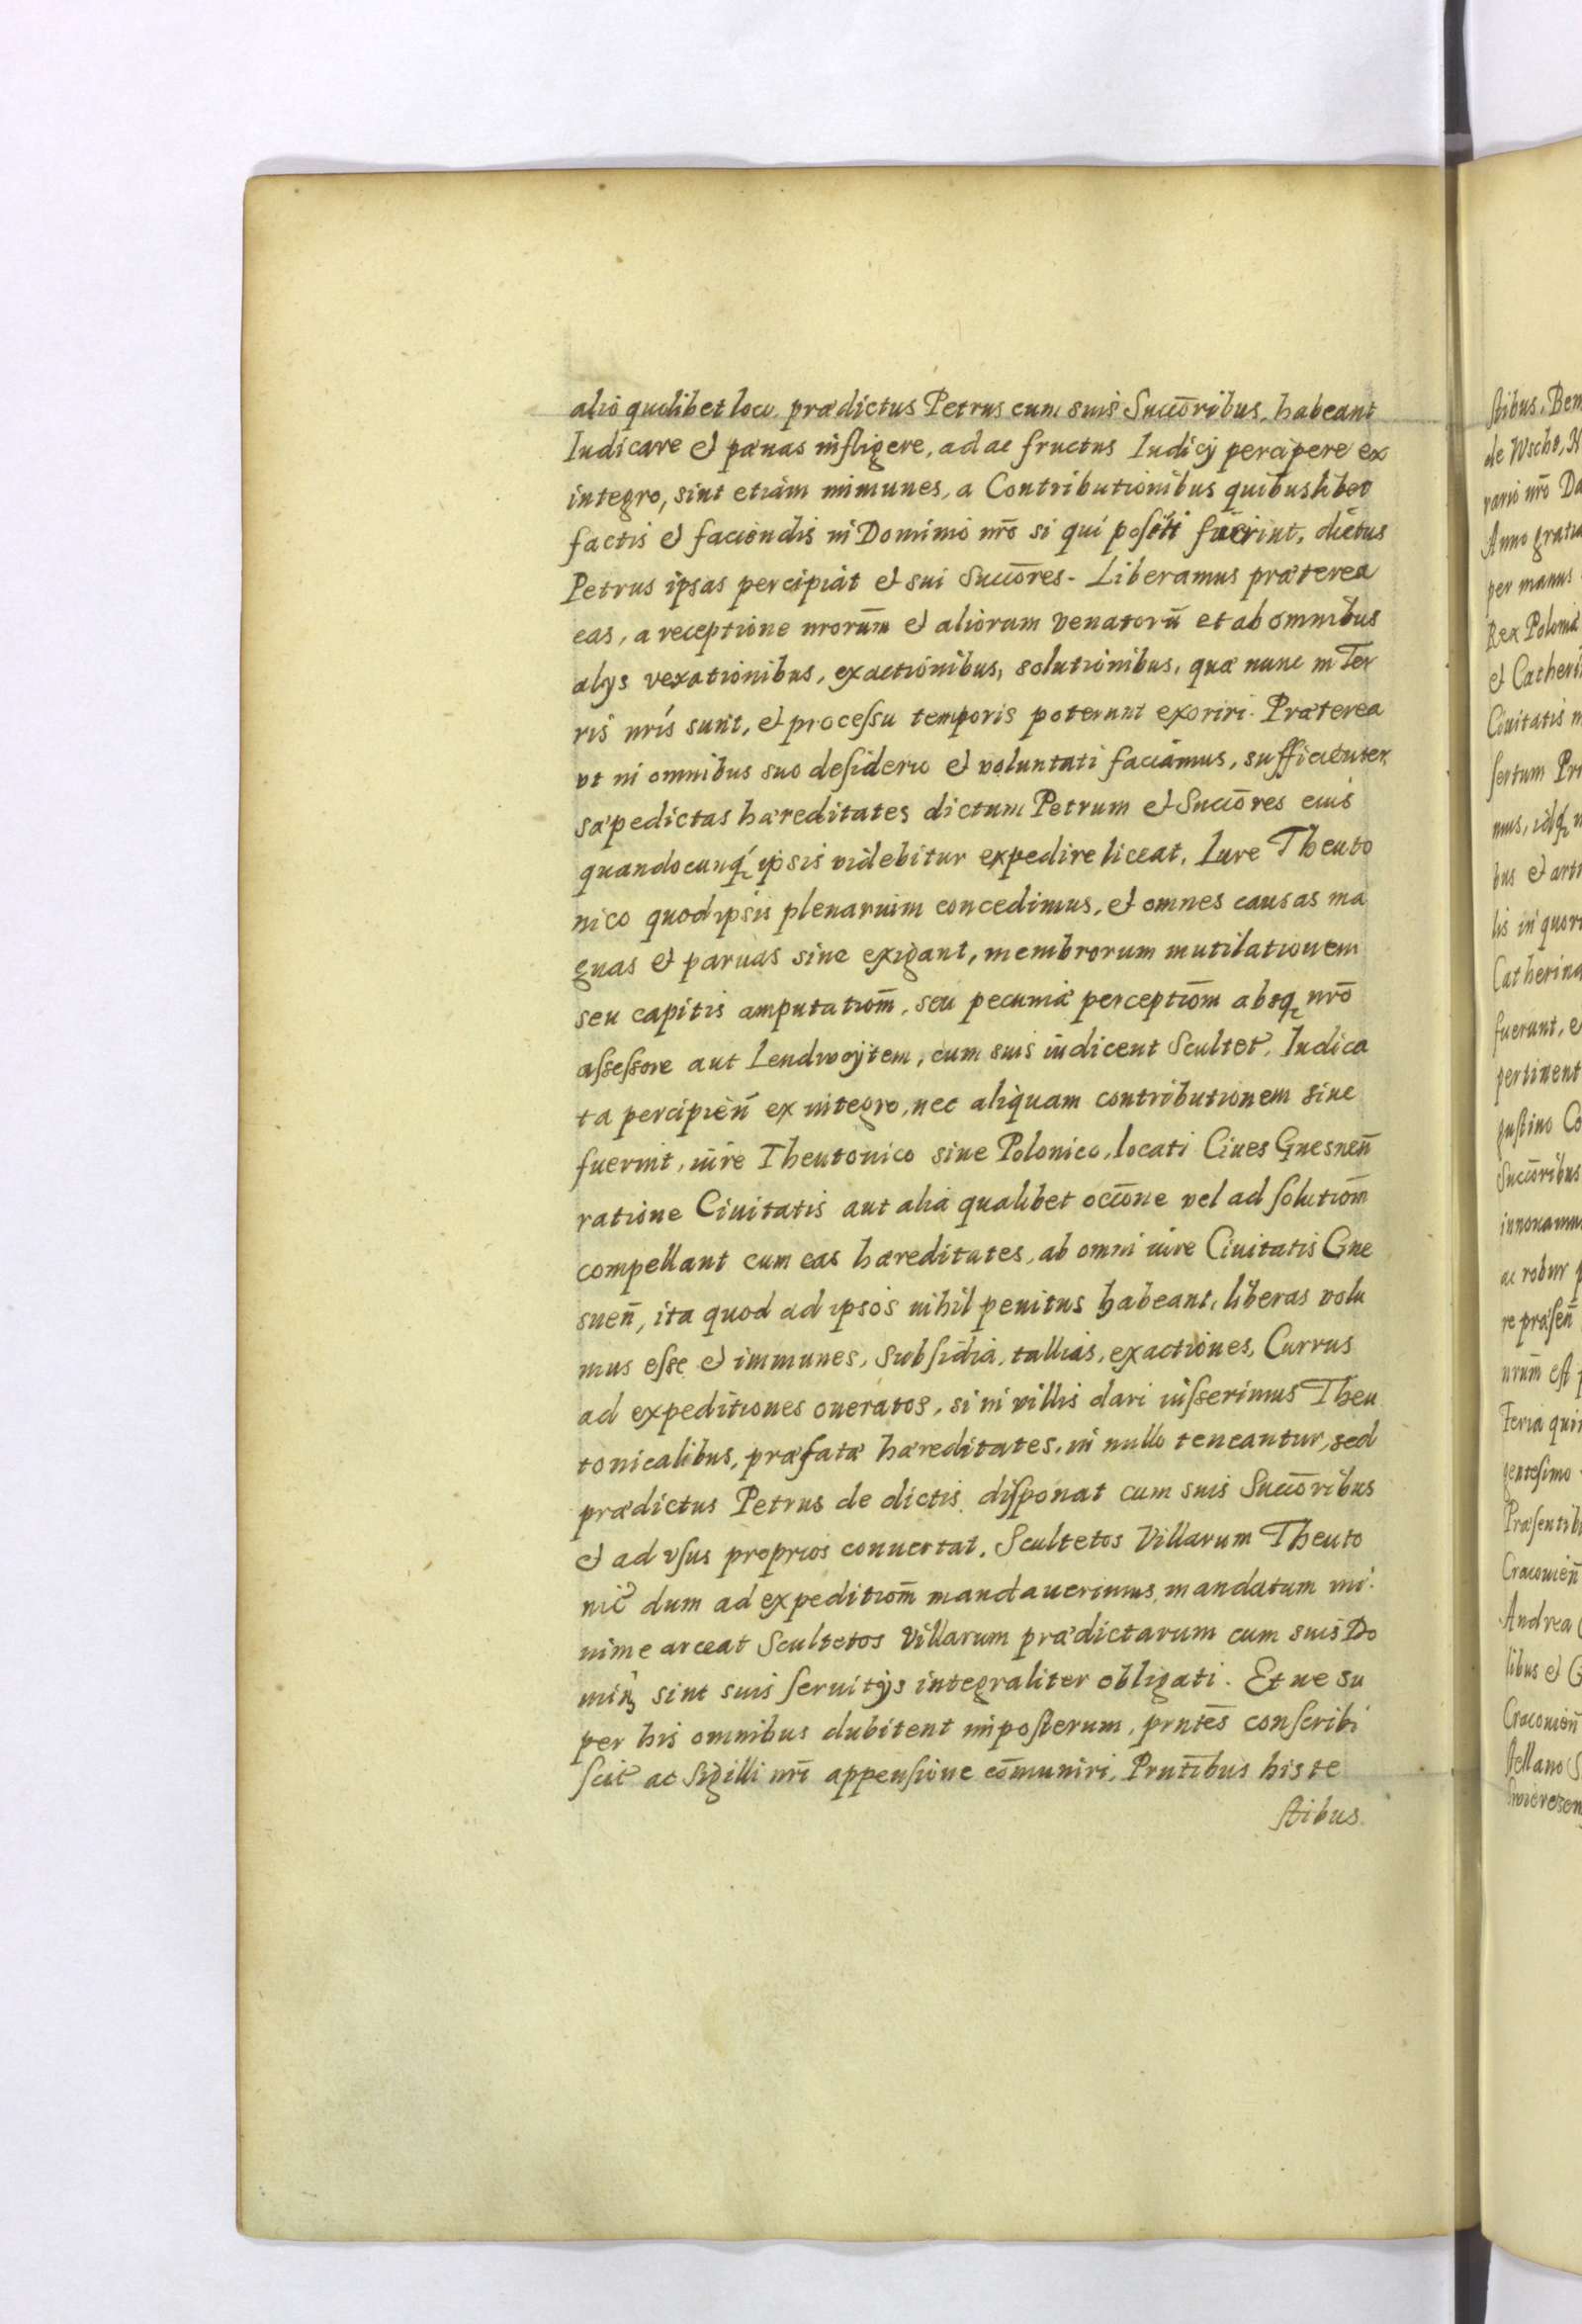 alio quolibet loco prædictus Petrus cum suis Succōribus, habeant
Iudicare et pænas infligere, ad ac fructus Iudicÿ percipere ex
integro, sint etiam immunes, a Contributionibus quibuslibet
factis et faciendis in Dominio nrō si qui positi fuerint, dictus
Petrus ipsas percipiat et sui Succōres. Liberamus præterea
eas, a receptione nrorum̄ et aliorum venatorū et ab omnibus
alÿs vexationibus, exactionibus, solutionibus, quæ nunc in Ter
ris nrīs sunt, et processu temporis poterunt exoriri. Præterea
vt in omnibus suo desiderio et voluntati faciamus, sufficienter
sæpedictas hæreditates dictum Petrum et Succōres eius
quandocunq́ꝫ ipsis videbitur expedire liceat. Iure Theuto
nico quod ipsis plenarium concedimus, et omnes causas ma
gnas et paruas siue exigant, membrorum mutilationem
seu capitis amputatiom̄, seu pecuniæ perceptiōm absqꝫ nrō
assessore aut Lendwoÿtem, cum suis iudicent Scultet̄. Iudica
ta percipien̄ ex integro, nec aliquam contributionem siue
fuerint, iure Theutonico siue Polonico, locati Ciues Gnesnen̄
ratione Ciuitatis aut alia qualibet occōne vel ad solutiom̄
compellant cum eas hæreditates, ab omni iure Ciuitatis Gne
snen̄, ita quod ad ipsos nihil penitus habeant, liberas volu
mus esse et immunes, Subsidia, tallias, exactiones, Currus
ad expeditiones oneratos, si in villis dari iusserimus Theu
tonicalibus, præfatæ hæreditates, in nullo teneantur, sed
prædictus Petrus de dictis disponat cum suis Succōribus
et ad vsus proprios conuertat. Scultetos Villarum Theuto
nic̄ dum ad expeditiom̄ mandauerimus, mandatum mi
nime arceat Scultetos Villarum prædictarum cum suis Do
minꝫ sint suis seruitÿs integraliter obligati. Et ne su
per his omnibus dubitent imposterum, pnrtēs conscribi
scit̄ ac Sigilli nrī appensione cōmuniri. Prntībus his te
stibus.